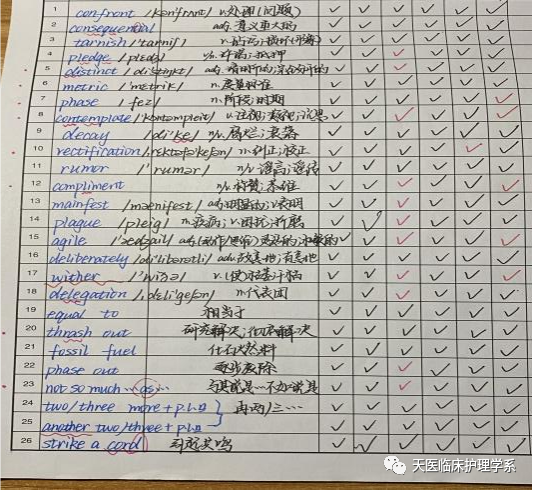 1 confront /kənfrʌnt/ v.处理(问题)
2 consequential adj.意义重大的
3 tarnish /tɑrnɪʃ/
4 pledge /pledʒ/ 抵押
5 distinct /dɪstɪŋkt/ adj.
6 metric /metrik/ n.度量标准
7 phase /feɪz/ n.阶段;时期
8 contemplate /kɒntempleit/ v.注视;凝视;沉思
9 decay /di'ke/ n/v.腐烂;衰落
10 rectification n.纠正;校正
11 rumor /'rumər/ n/v.谣言;谣传
12 compliment n/v.称赞;恭维
13 mainfest /mænifest/ v.表明
14 plague /pleig/ n.疫病;v.困扰;折磨
15 agile
16 deliberately adv.故意地;有意地
17 wither /'wɪðə/ v.(使)枯萎;干枯
18 delegation /,delɪ'geʃən/ n.代表团
19 equal to 相当于
20 thrash out 研究解决;彻底解决
21 fossil fuel 化石燃料
22 phase out 逐步废除
23 not so much ... as ... 与其说是…不如说是
24 two/three more + pl.n 再两/三…
25 another two/three + pl.n
26 strike a cord 引起共鸣
天医临床护理学系